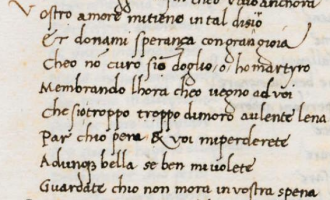 cheo vivo anchora
Vostro amore mi tiene in tal disio
Et donami speranza con gran gioia
Cheo no curo sio doglio, o homartyro
Membrando lhora cheo vegno ad voi
Che siotroppo troppo dimoro aulente lena
Par chio pera & voi mi perderete
Adunq bella se ben mi volete
Guardate chio non mora in vostra spena